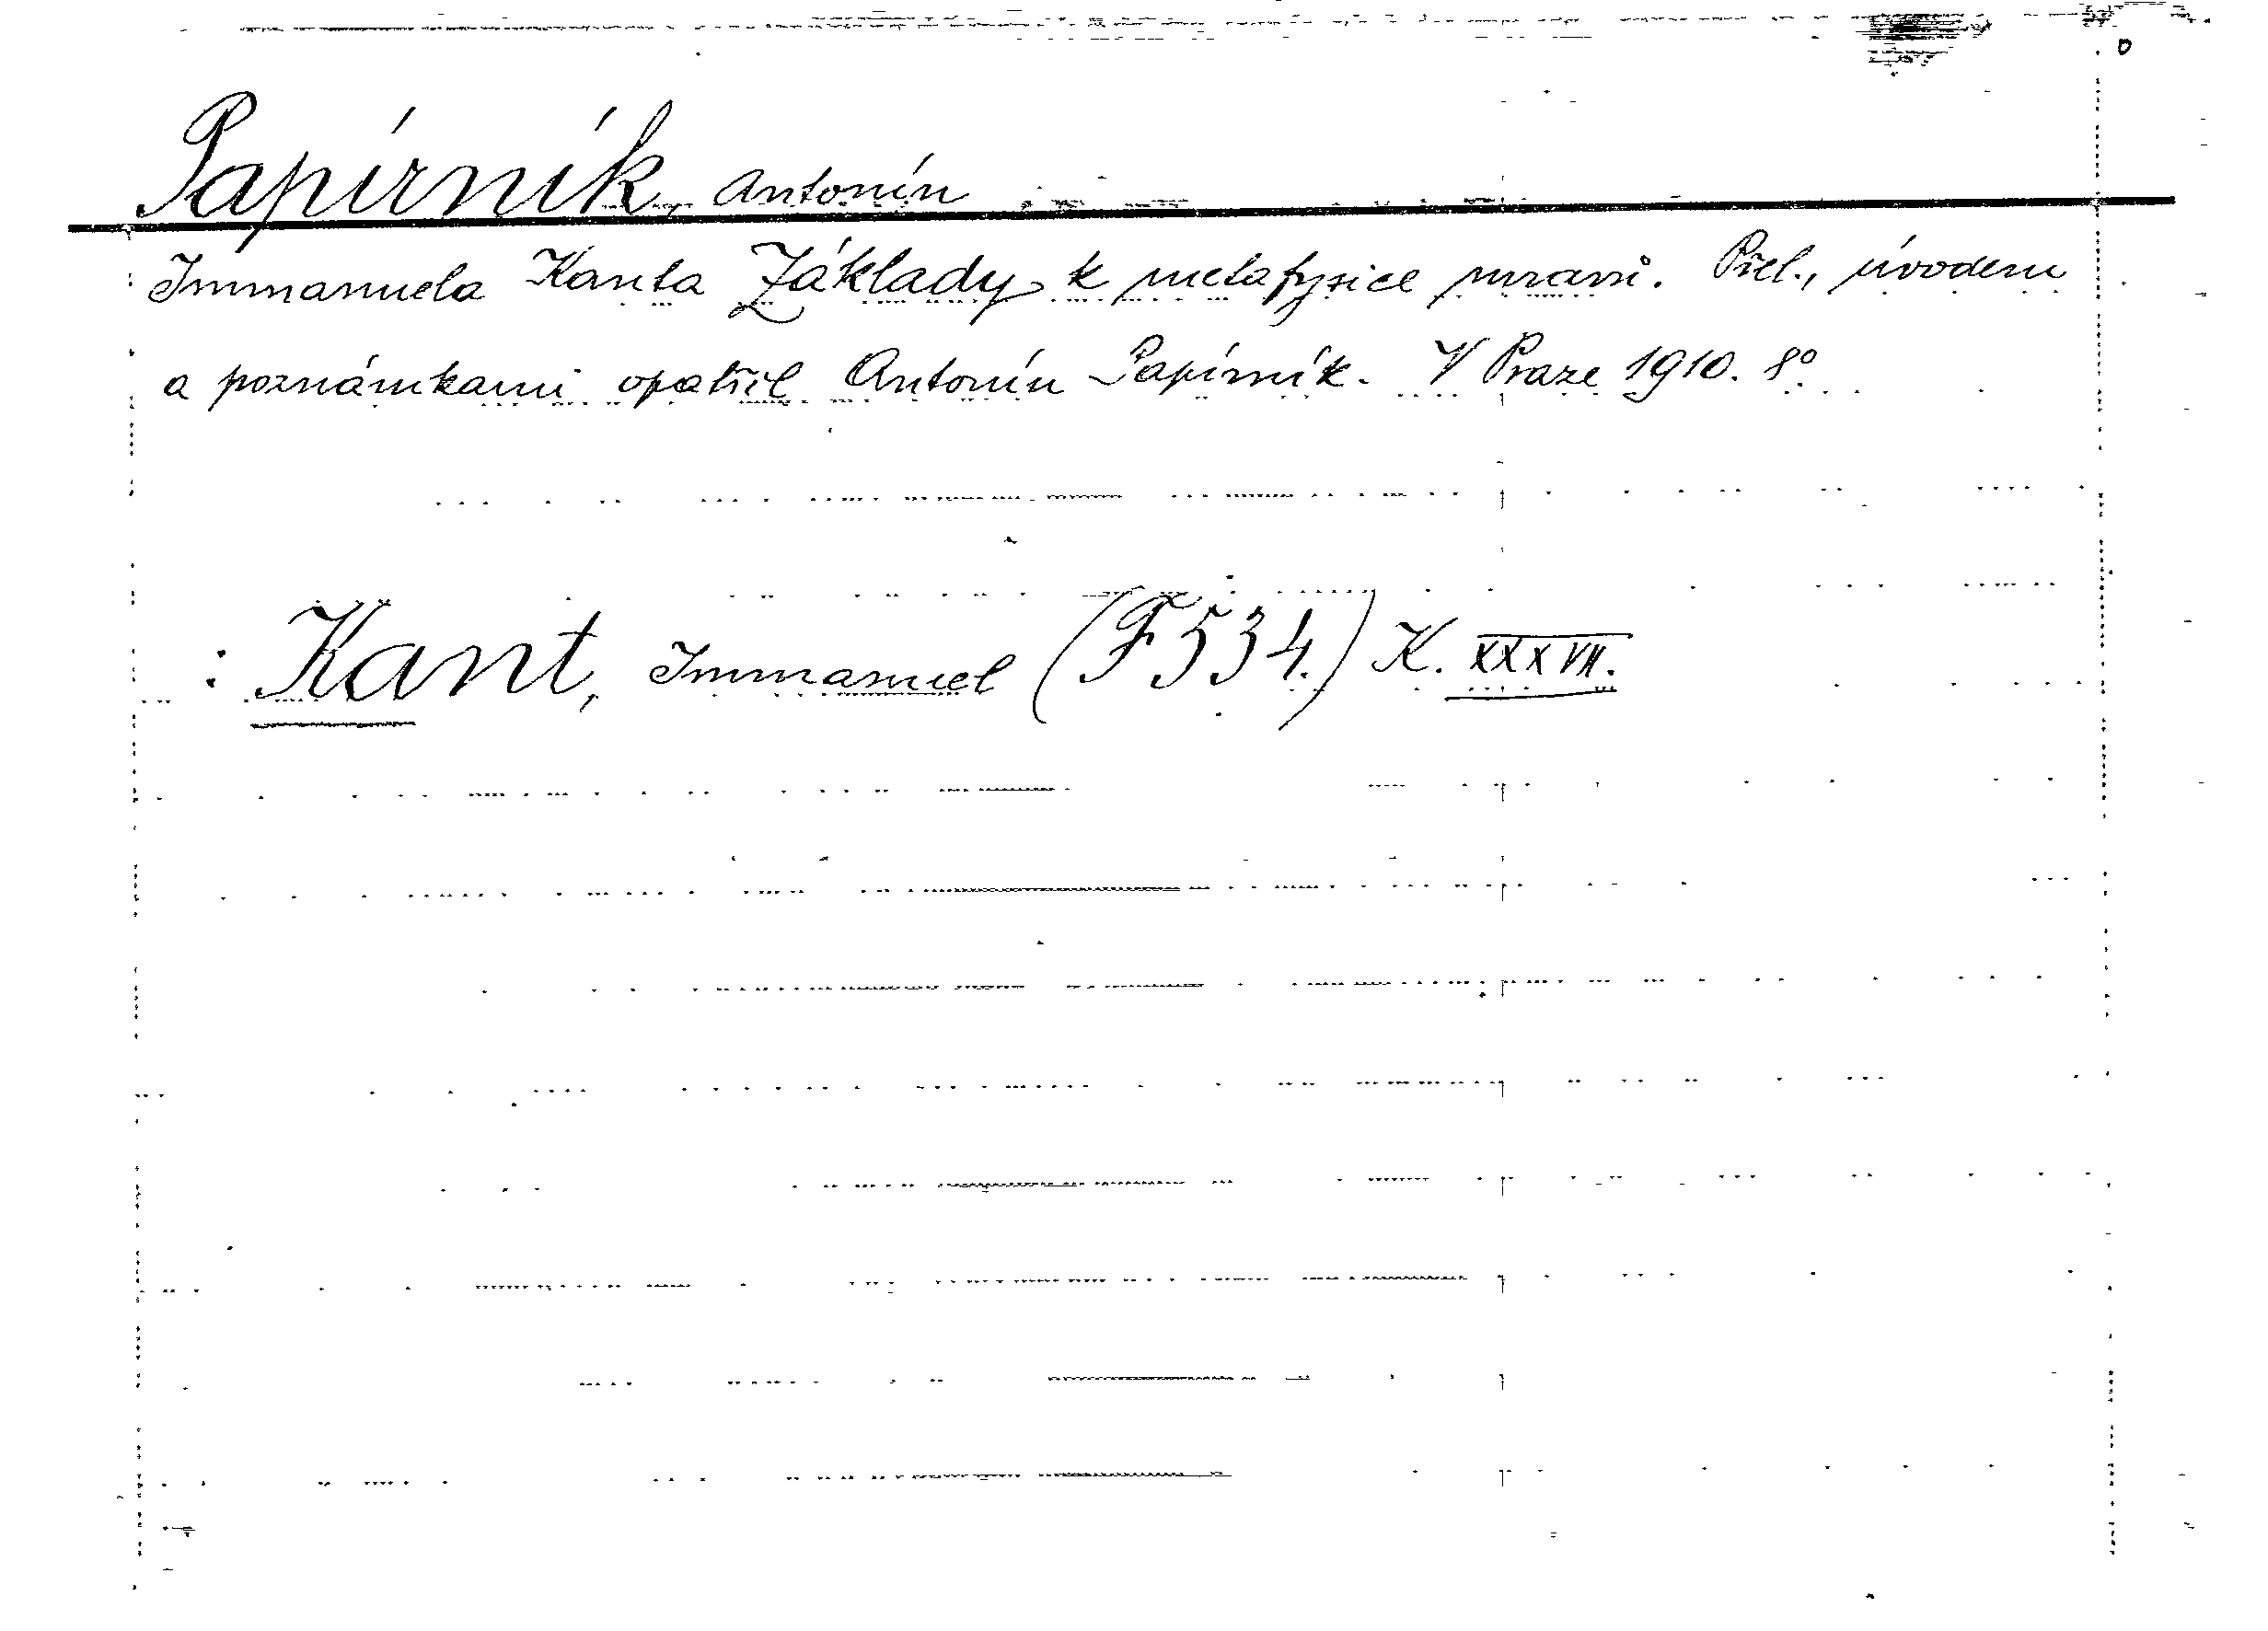 Papírník, Antonín
Immanuela Kanta Základy k metafysice mravů. Přel., úvodem
a poznámkami opatřil Antonín Papírník. V Praze 1910. 8º
: Kant, Immanuel (F 534.) K. XXXVII.